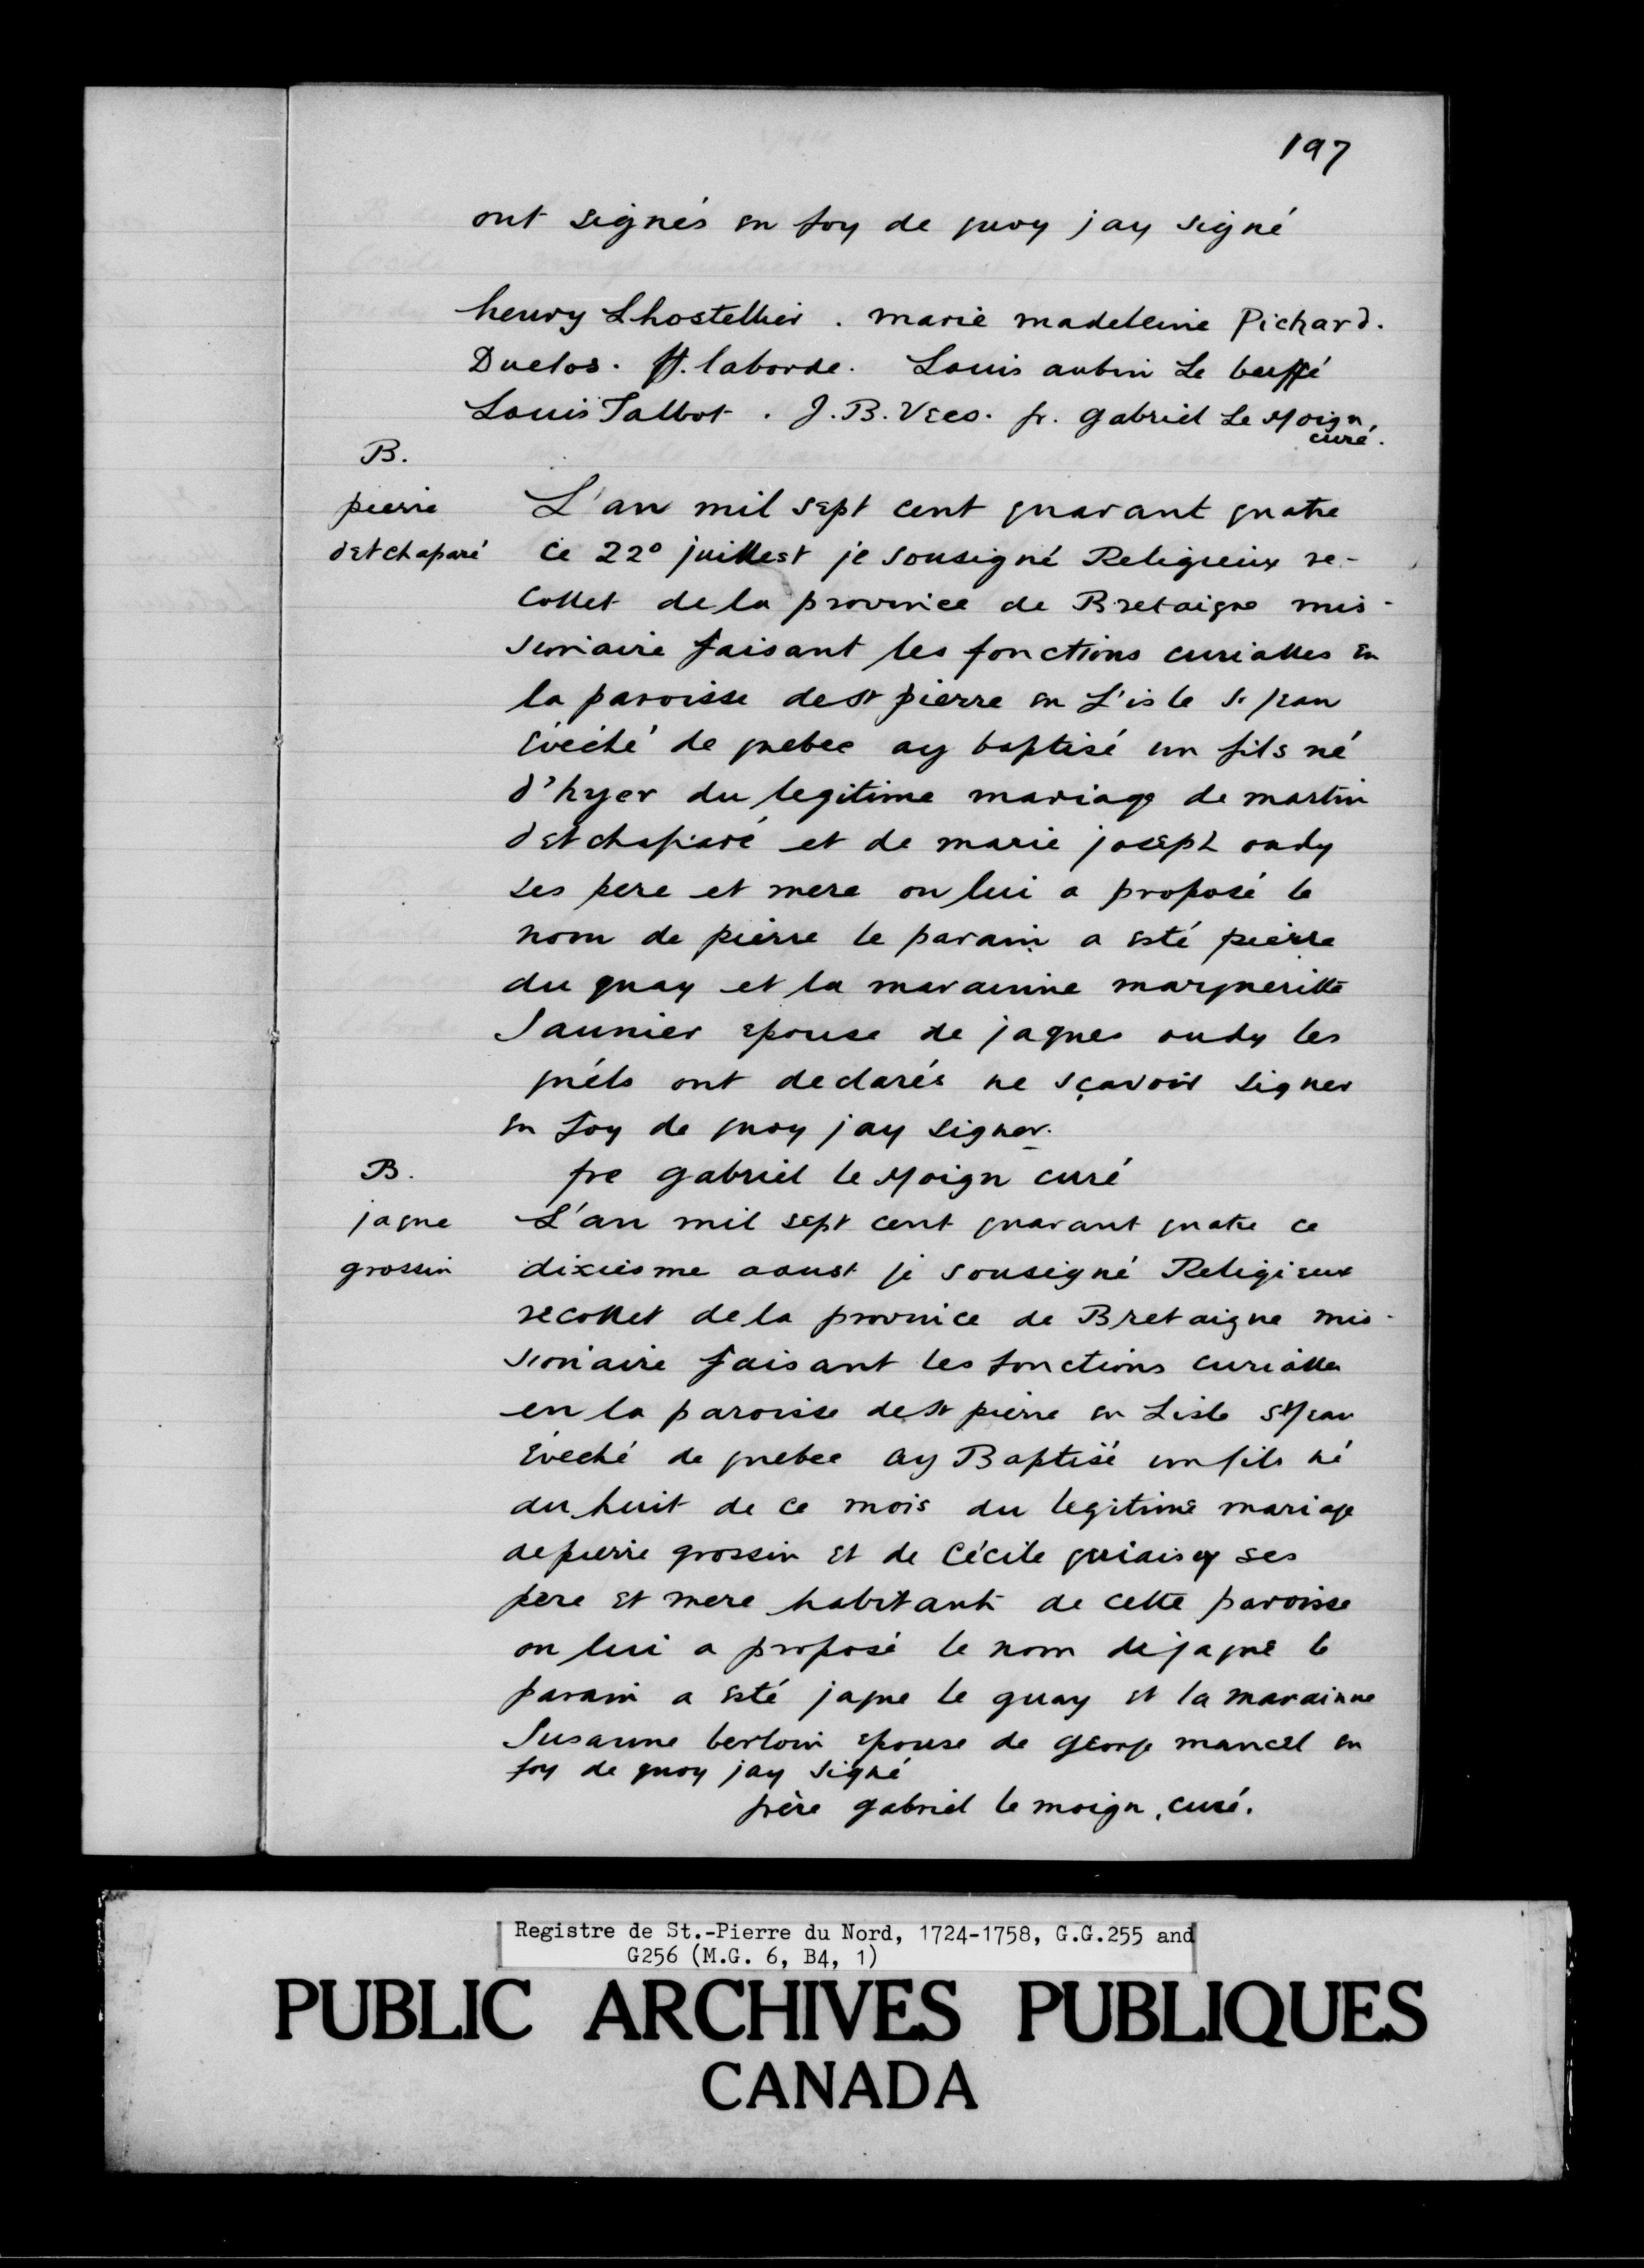 197
ont signés en foy de quoy jay signé
henry Lhostellier . marie madelleine Pichard.
Duclos. ff. laborde. Louis aubin Le buffé
Louis Talbot . J. B. Veco. fr. gabriel Le Moign,
curé.
B.
pierre
detchaparé
L'an mil sept cent quarant quatre
ce 22º juillest je sousigné Religieux re-
collet de la province de Bretaigne mis-
sionaire faisant les fonctions curialles en
la paroisse de st pierre en L'isle st jean
évéché de quebec ay baptisé un fils né
d'hyer du legitime mariage de martin
detchaparé et de marie joseph oudy
ses pere et mere on lui a proposé le
nom de pierre le parain a esté pierre
du quay et la marainne margueritte
Saunier epouse de jaques oudy les
quéls ont declarés ne sçavoir signer
en foy de quoy jay signer.
fre gabriel le Moign curé
B.
jaque
grossin
L'an mil sept cent quarant quatre ce
dixiesme aoust je sousigné Religieux
recollet de la province de Bretaigne mis-
sionaire faisant les fonctions curialles
en la paroisse de st pierre en Lisle st jean
évéché de quebec ay Baptisé un fils né
du huit de ce mois du legitime mariage
de pierre grossin et de Cécile
ses
pere et mere habitants de cette paroisse
on lui a proposé le nom de jaque le
parain a esté jaque le quay et la marainne
Susanne berloin epouse de george mancel en
foy de quoy jay signé
frère gabriel le moign, curé.
Registre de St.-Pierre du Nord, 1724-1758, G.G.255 and
G256 (M.G. 6, B4, 1)
PUBLIC ARCHIVES PUBLIQUES
CANADA